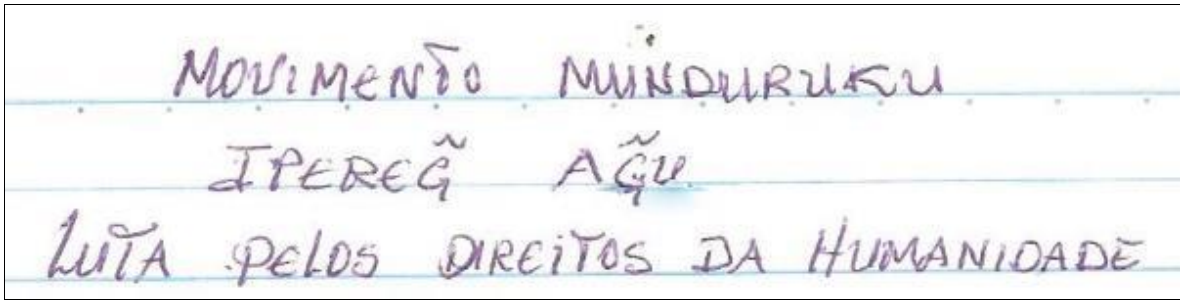 MOVIMENTO MUNDURUKU
IPEREG̃ AG̃U
LUTA PELOS DIREITOS DA HUMANIDADE